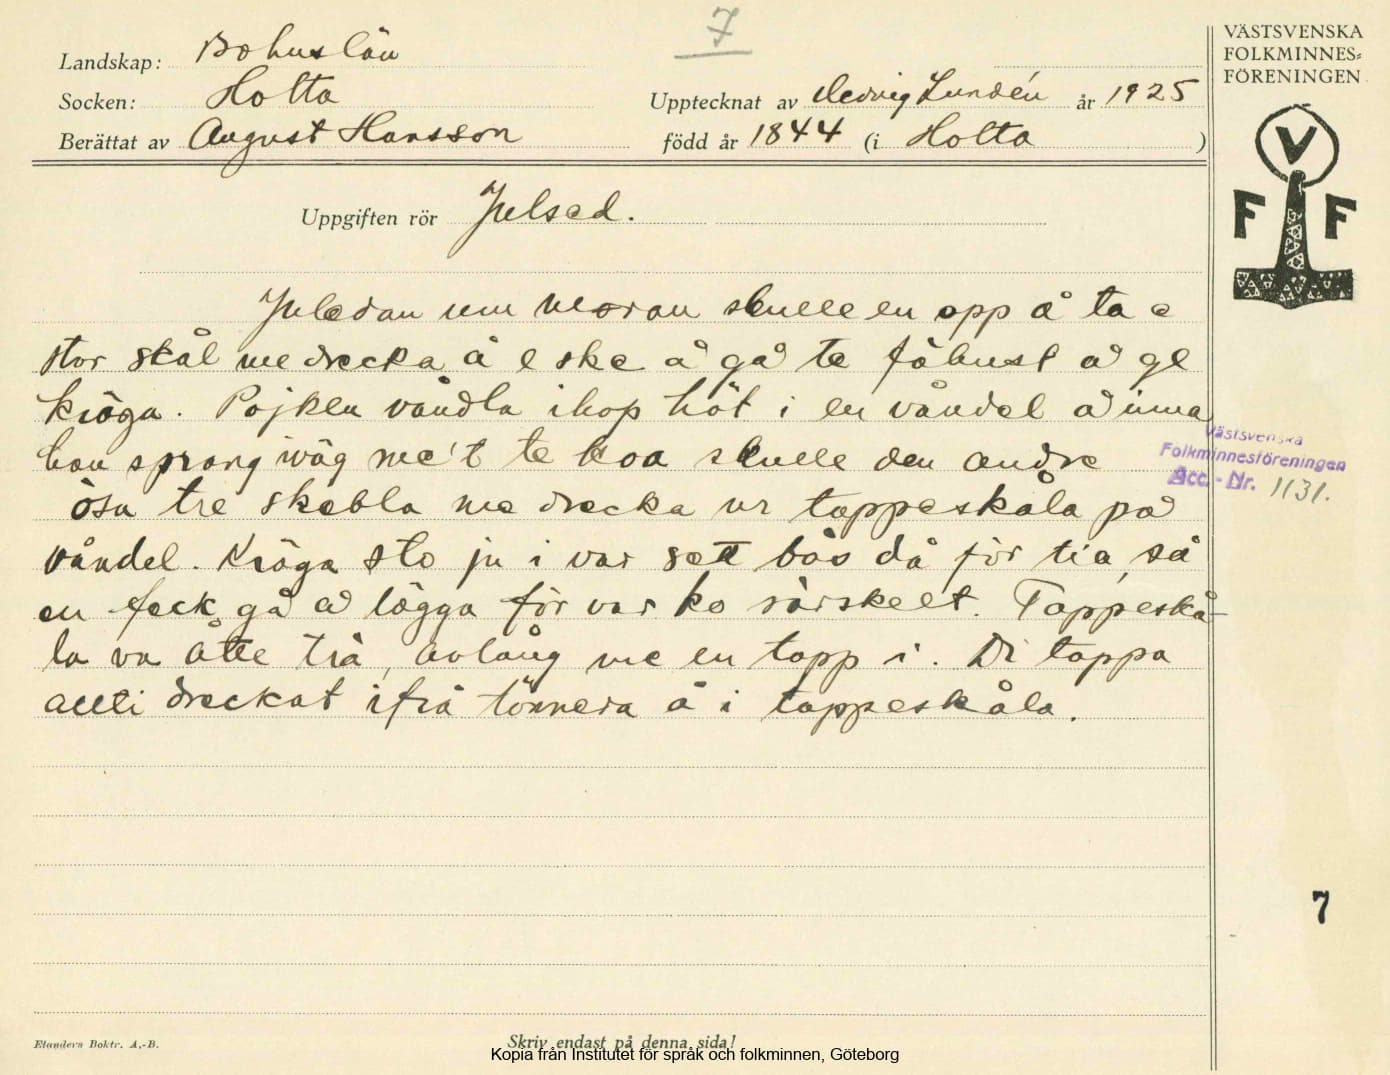 7
VÄSTSVENSKA
FOLKMINNES-
FÖRENINGEN
V
F F
Landskap: Bohuslän
Socken: Holta
Upptecknat av Hedvig Lundén år 1925
Berättat av August Hansson
född år 1844 (i Holta )
Uppgiften rör Julsed.
Juledan um moran skulle en opp å ta e
stor skål me drecka å e ske å gå te fähust å ge
kröga. Pojken våndla ihop höt i en våndel å inna
han sprang iväg me't te koa skulle den andre
ösa tre skebla me drecka ur tappeskåla på
våndel. Kröga sto ju i var sett bås då för tia, så
en feck gå å lägga för var ko särskelt. Tappeskå-
la va åtte trä, avlång me en tapp i. Di tappa
allti dreckat ifrå tönnera å i tappeskåla.
Västsvenska
Folkminnesföreningen
Acc.-Nr. 1131.
7
Elanders Boktr. A.-B.
Skriv endast på denna sida!
Kopia från Institutet för språk och folkminnen, Göteborg